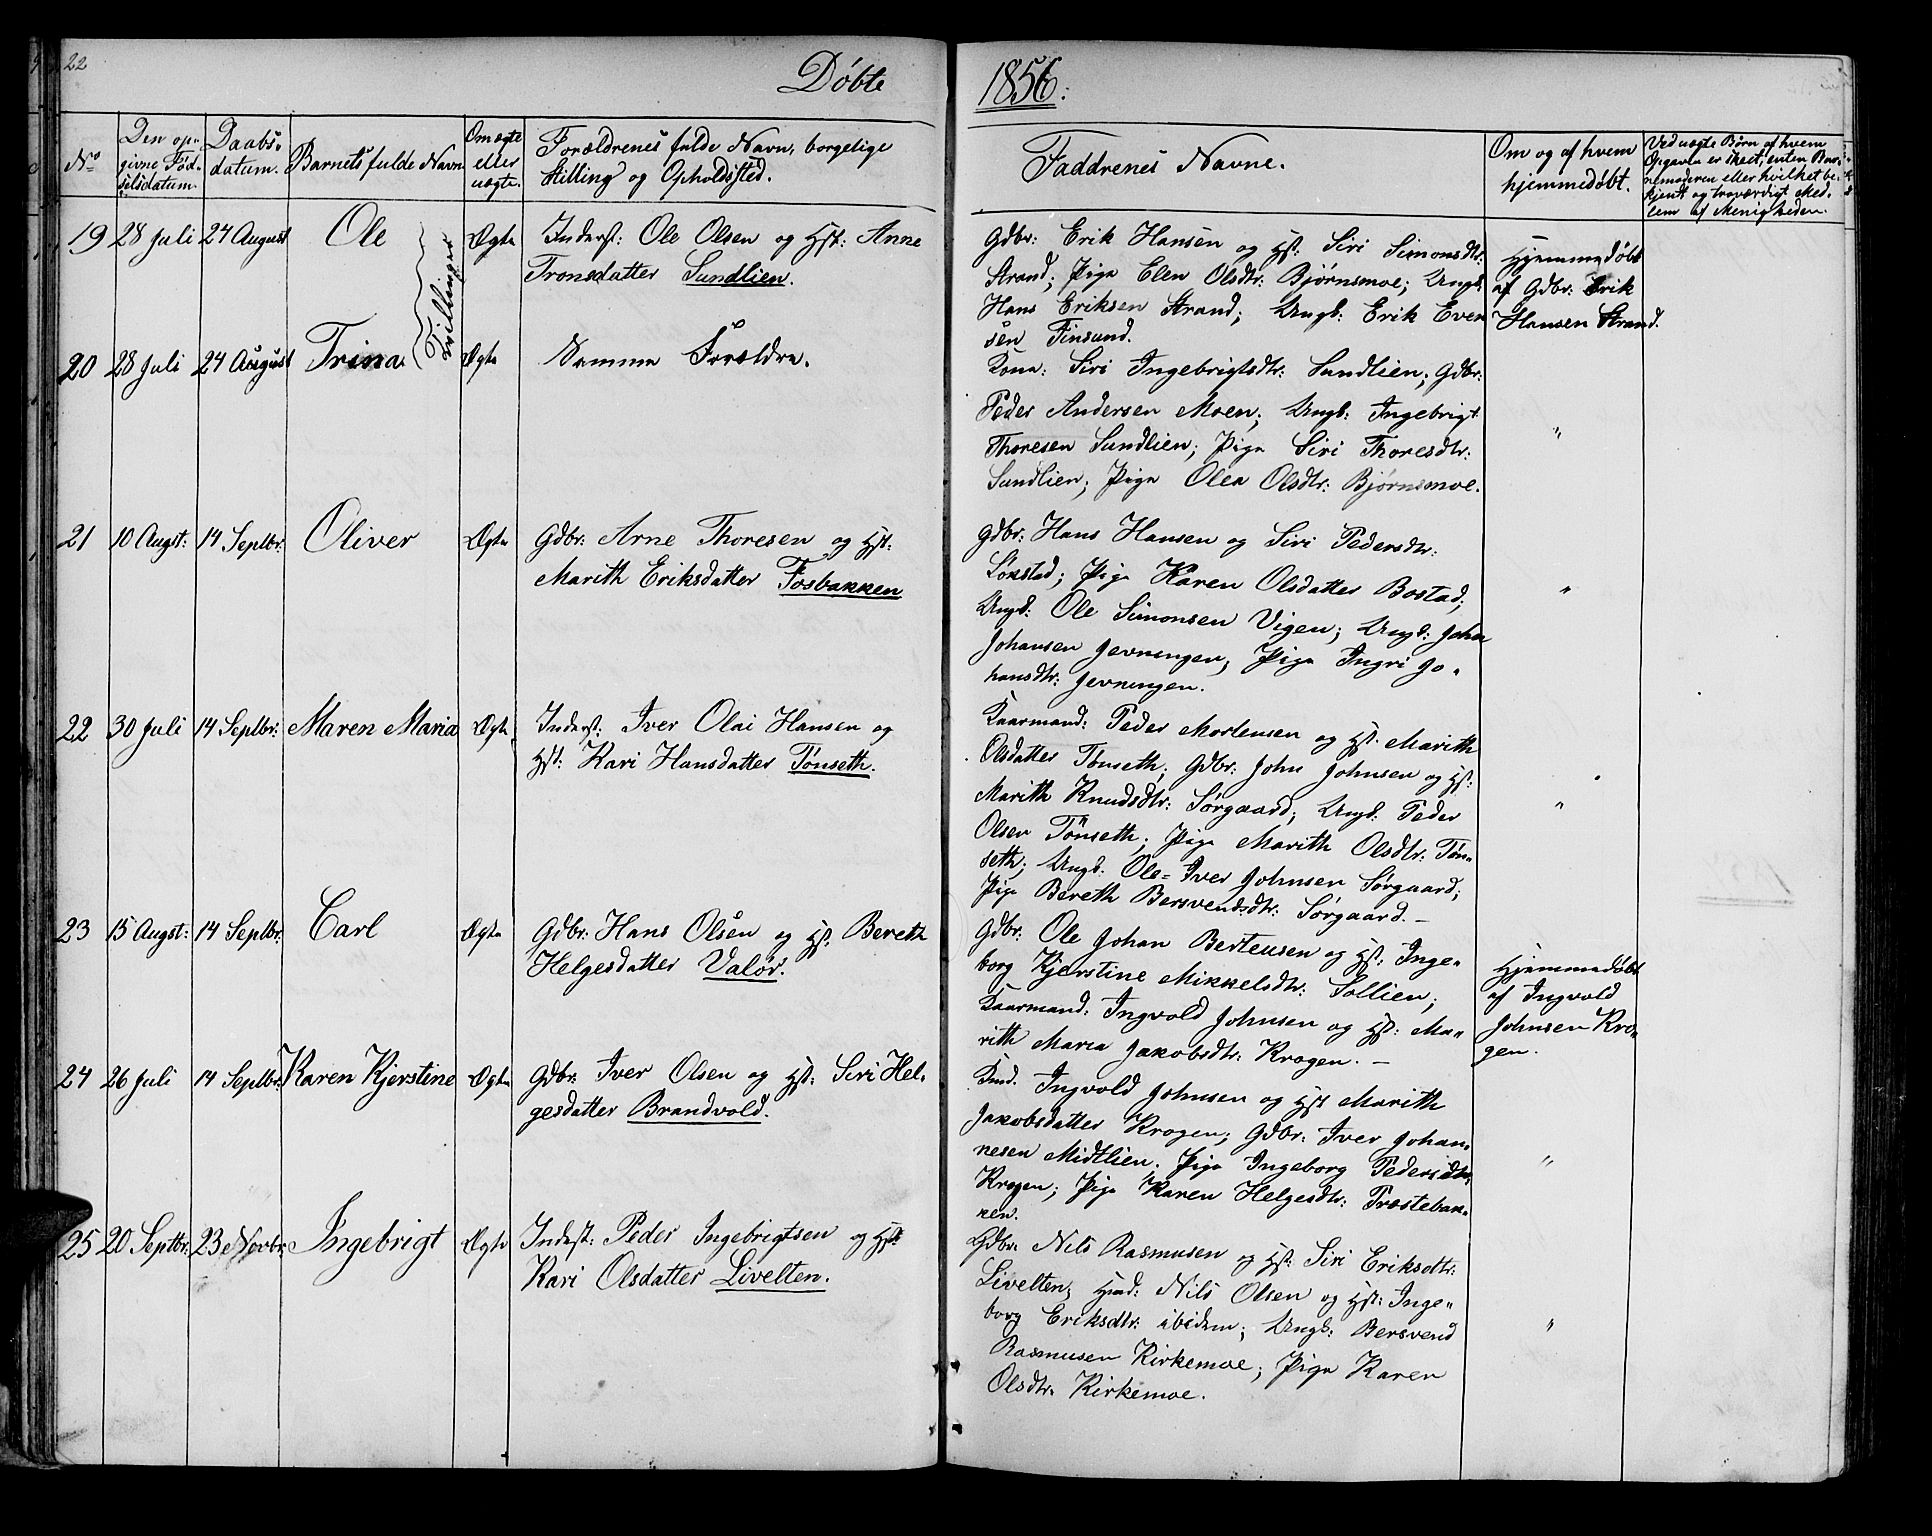 22
Döbte
1856:
No
Den op-
givne Fød-
selsdatum.
Daabs-
datum.
Barnets fulde Navn
Om ægte
eller
uægte.
Forældrenes fulde Navn, borgelige
Stilling og Opholdssted.
Faddrenes Navne.
Om og af hvem
hjemmedøbt.
Ved uægte Børn af hvem
Opgaven er skeet, enten Bar-
nemoderen eller hvilket be-
kjendt og troværdigt Med-
lem af Menigheden.
19 28 Juli 24 August Ole Ægte Inderst: Ole Olsen og Hst: Anne
Tronsdatter Sundlien.
Tvillinger
Gdbr: Erik Hansen og Hst: Siri Simonsdtr:
Strand; Pige Elen Olsdtr: Bjørnsmoe; Ungk:
Hans Eriksen Strand; Ungk: Erik Even
sen Finsund.
Hjemmedøbt
af Gdbr: Erik
Hansen Strand.
20 28 Juli 24 August Trina Ægte Samme Forældre.
Kone: Siri Ingebrigtsdtr: Sundlien; Gdbr:
Peder Andersen Moen; Ungk: Ingebrigt
Thoresen Sundlien; Pige Siri Thoresdtr:
Sundlien; Pige Olea Olsdtr: Bjørnsmoe.
"
21 10 Augst: 14 Septbr: Oliver Ægte Gdbr: Arne Thoresen og Hst:
Marith Eriksdatter Fosbakken
Gdbr: Hans Hansen og Siri Pedersdtr:
Løkstad; Pige Karen Olsdatter Bostad;
Ungk: Ole Simonsen Vigen; Ungk: John
Johansen Jevningen; Pige Ingri Jo-
hansdtr: Jevningen.
"
22 30 Juli 14 Septbr: Maren Maria Ægte Inderst: Iver Olai Hansen og
Hst: Kari Hansdatter Tønseth.
Kaarmand: Peder Mortensen og Hst. Marith
Olsdatter Tønseth; Gdbr: John Johnsen og Hst:
Marith Knudsdtr: Sørgaard; Ungk: Peder
Olsen Tønseth; Pige Marith Olsdtr: Tøn-
seth; Ungk: Ole-Iver Johnsen Sørgaard;
Pige Bereth Bersvendsdtr: Sørgaard. –
"
23 15 Augst: 14 Septbr: Carl Ægte Gdbr: Hans Olsen og Hst. Bereth
Helgesdatter Valør.
Gdbr: Ole Johan Berteusen og Hst: Inge-
borg Kjerstine Mikkelsdtr: Sollien;
Kaarmand: Ingvold Johnsen og Hst: Ma-
rith Maria Jakobsdtr: Krogen. –
Hjemmedøbt
af Ingvold
Johnsen Kro-
gen.
24 26 Juli 14 Septbr: Karen Kjerstine Ægte Gdbr: Iver Olsen og Hst: Siri Hel-
gesdatter Brandvold.
Kmd. Ingvold Johnsen og Hst Marith
Jakobsdatter Krogen; Gdbr: Iver Johan-
nesen Midtlien. Pige Ingeborg Pedersdtr.
Krogen; Pige Karen Helgesdtr: Træstebak-
ken.
"
25 20 Septbr: 23 Novbr: Ingebrigt Ægte Indest: Peder Ingebrigtsen og Hst:
Kari Olsdatter Livelten.
Gdbr: Nils Rasmusen og Hst: Siri Eriksdtr:
Livelten; Hmd: Nils Olsen og Hst: Inge-
borg Eriksdtr: ibidem; Ungk: Bersvend
Rasmusen Kirkemoe; Pige Karen
Olsdtr. Kirkemoe.
"